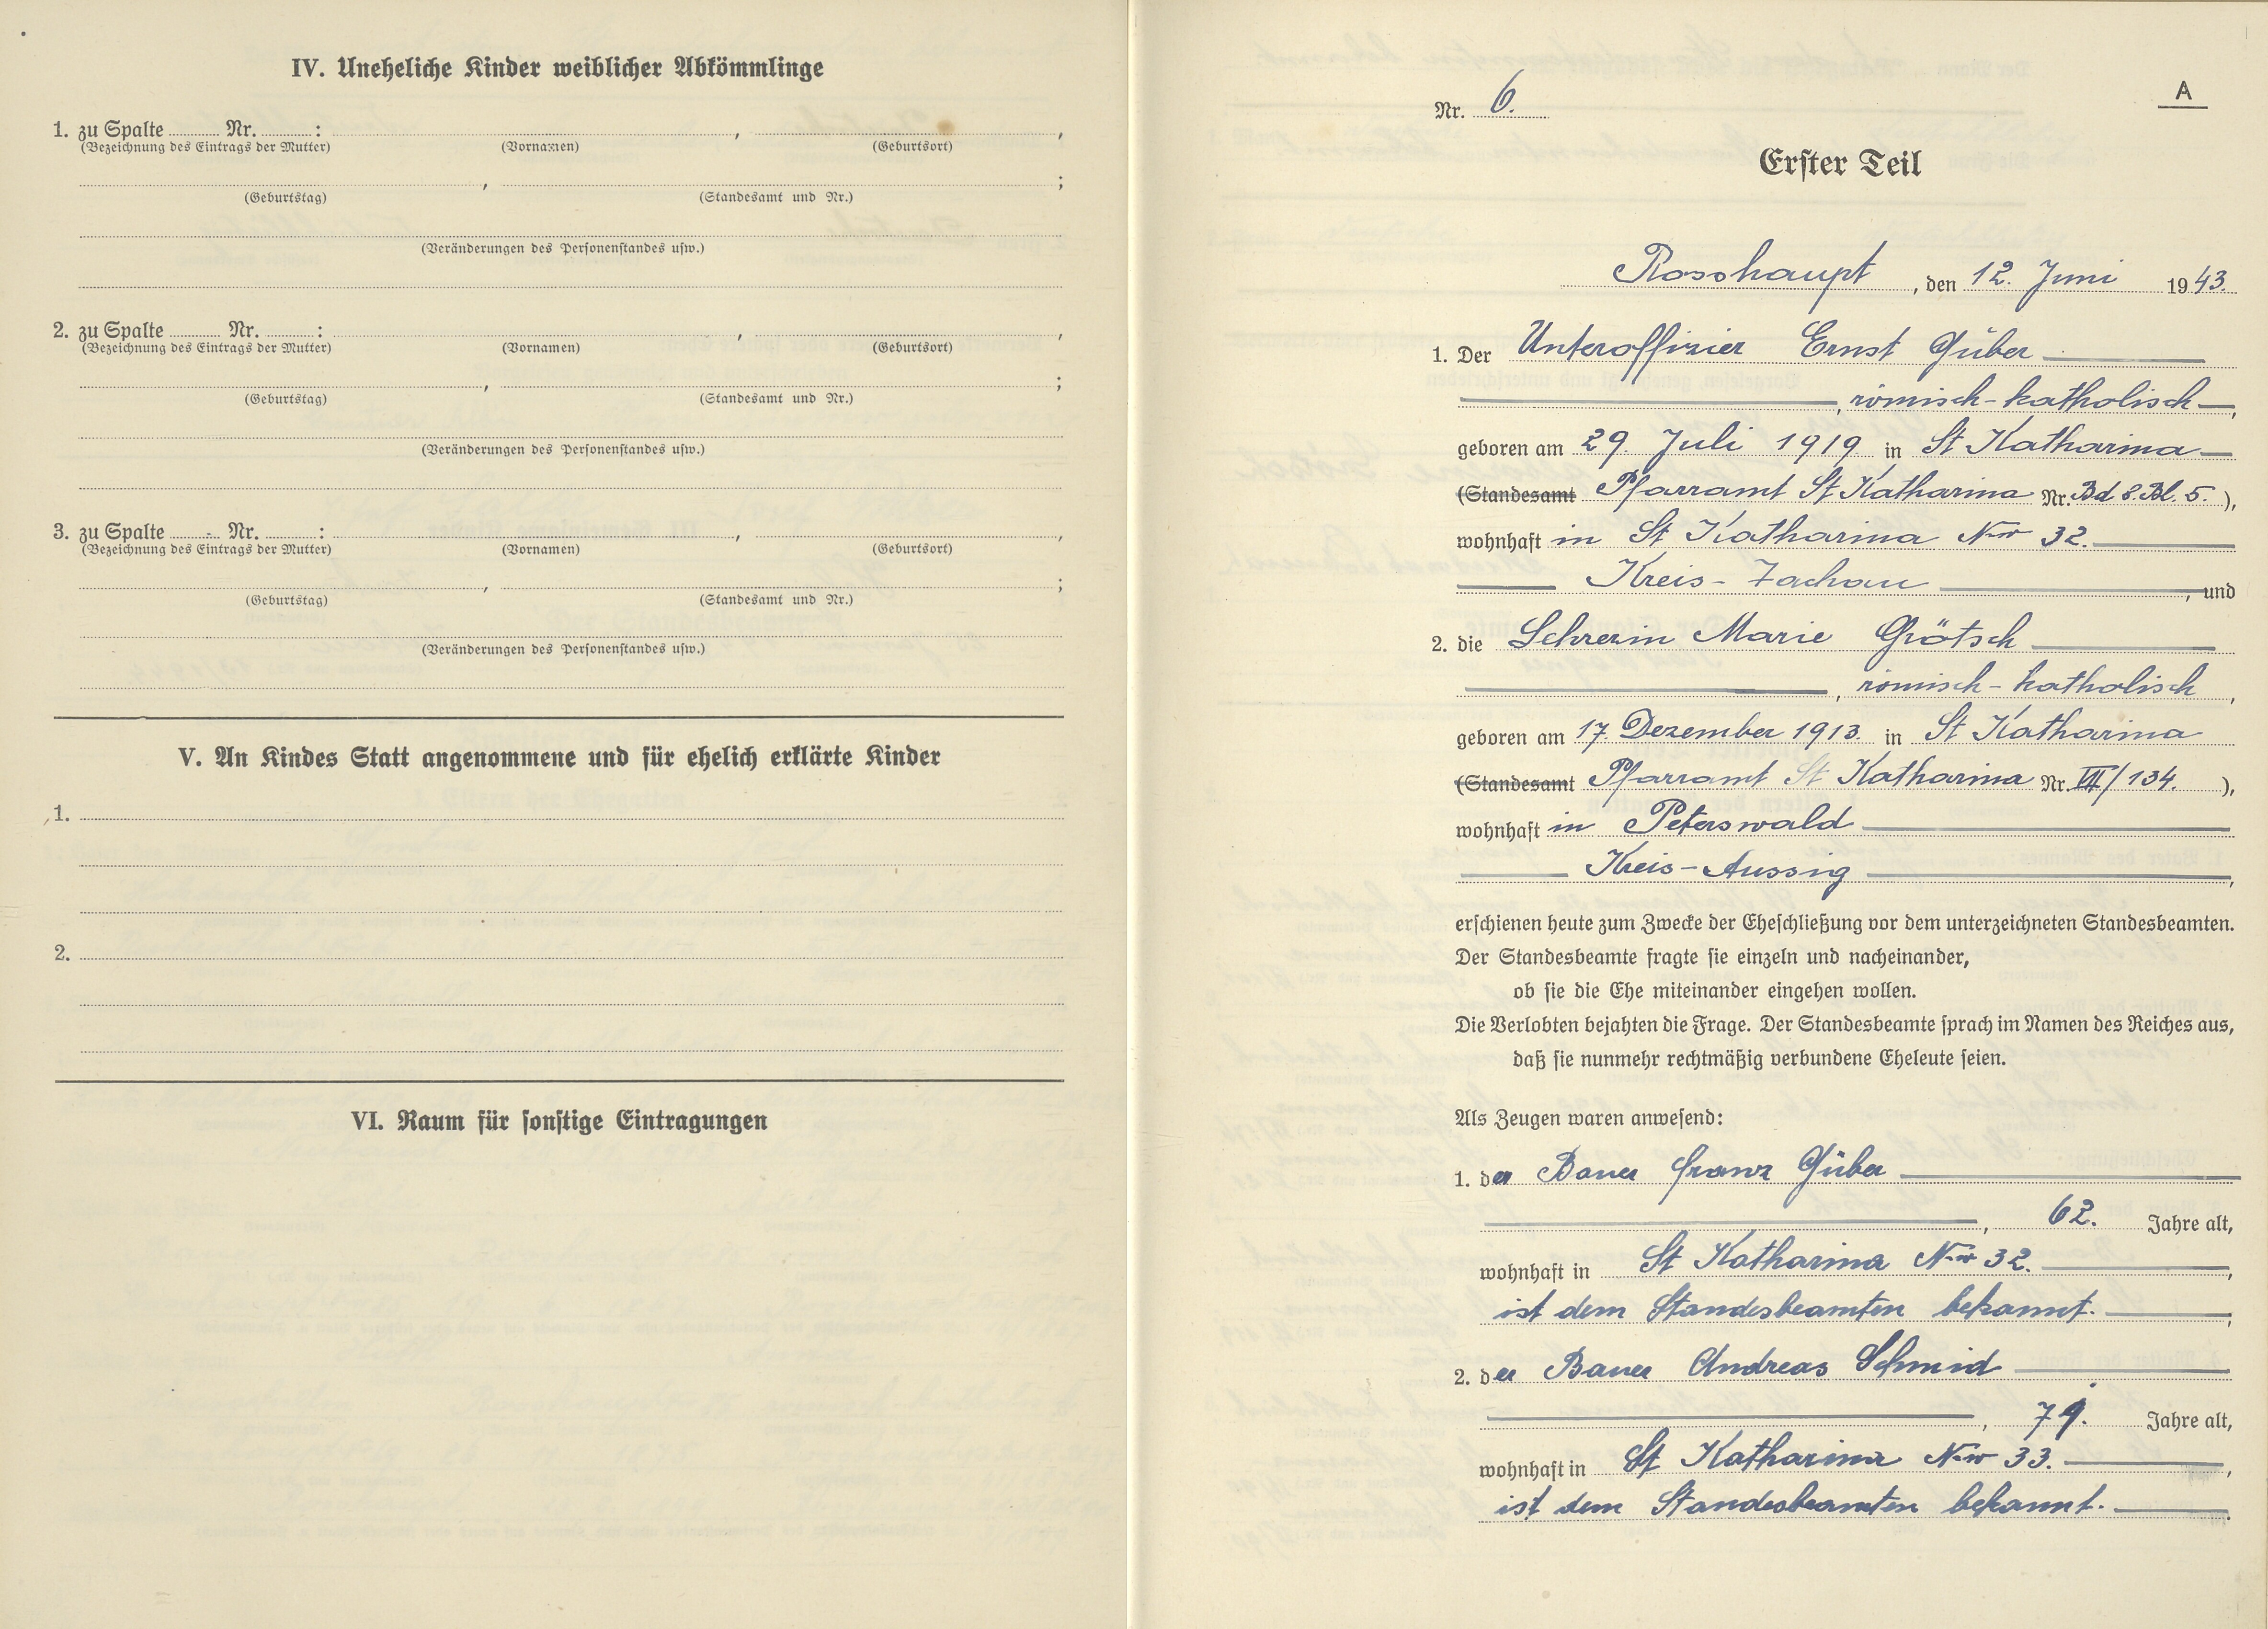 IV. Uneheliche Kinder weiblicher Abkömmlinge
1. zu Spalte ........ Nr. ........ : , ,
(Bezeichnung des Eintrags der Mutter) (Vornamen) (Geburtsort)
, ;
(Geburtstag) (Standesamt und Nr.)
(Veränderungen des Personenstandes usw.)
2. zu Spalte ........ Nr. ........ : , ,
(Bezeichnung des Eintrags der Mutter) (Vornamen) (Geburtsort)
, ;
(Geburtstag) (Standesamt und Nr.)
(Veränderungen des Personenstandes usw.)
3. zu Spalte ........ Nr. ........ : , ,
(Bezeichnung des Eintrags der Mutter) (Vornamen) (Geburtsort)
, ;
(Geburtstag) (Standesamt und Nr.)
(Veränderungen des Personenstandes usw.)
V. An Kindes Statt angenommene und für ehelich erklärte Kinder
1.
2.
VI. Raum für sonstige Eintragungen
A
Nr. 6.
Erster Teil
Rosshaupt, den 12. Juni 1943.
1. Der Unteroffizier Ernst Güber
, römisch-katholisch,
geboren am 29. Juli 1919 in St Katharina
(Standesamt Pfarramt St Katharina Nr. Bd 8. Bl. 5.),
wohnhaft in St Katharina Nr 32.
Kreis-Tachau, und
2. die Lehrerin Marie Grötsch
, römisch-katholisch,
geboren am 17. Dezember 1913. in St Katharina
(Standesamt Pfarramt St Katharina Nr. VII/134.),
wohnhaft in Peterswald
Kreis-Aussig,
erschienen heute zum Zwecke der Eheschließung vor dem unterzeichneten Standesbeamten.
Der Standesbeamte fragte sie einzeln und nacheinander,
ob sie die Ehe miteinander eingehen wollen.
Die Verlobten bejahten die Frage. Der Standesbeamte sprach im Namen des Reiches aus,
daß sie nunmehr rechtmäßig verbundene Eheleute seien.
Als Zeugen waren anwesend:
1. der Bauer Franz Güber
, 62. Jahre alt,
wohnhaft in St Katharina Nr 32.,
ist dem Standesbeamten bekannt.
2. der Bauer Andreas Schmid
, 79. Jahre alt,
wohnhaft in St Katharina Nr 33.,
ist dem Standesbeamten bekannt.